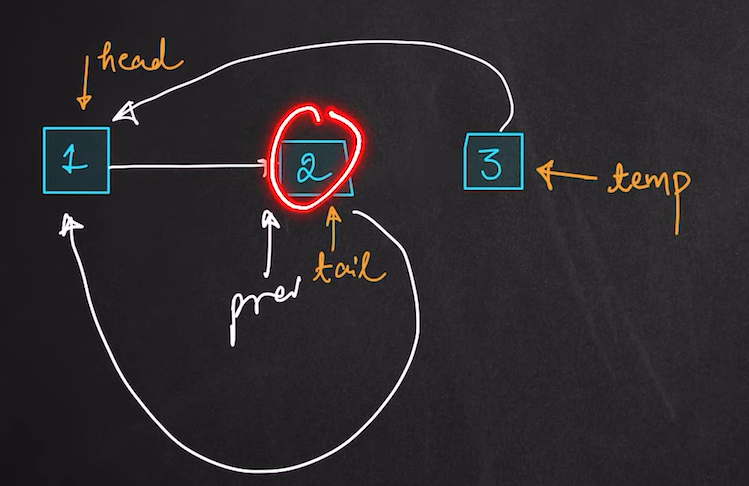 head
1
2
3
temp
prev
tail